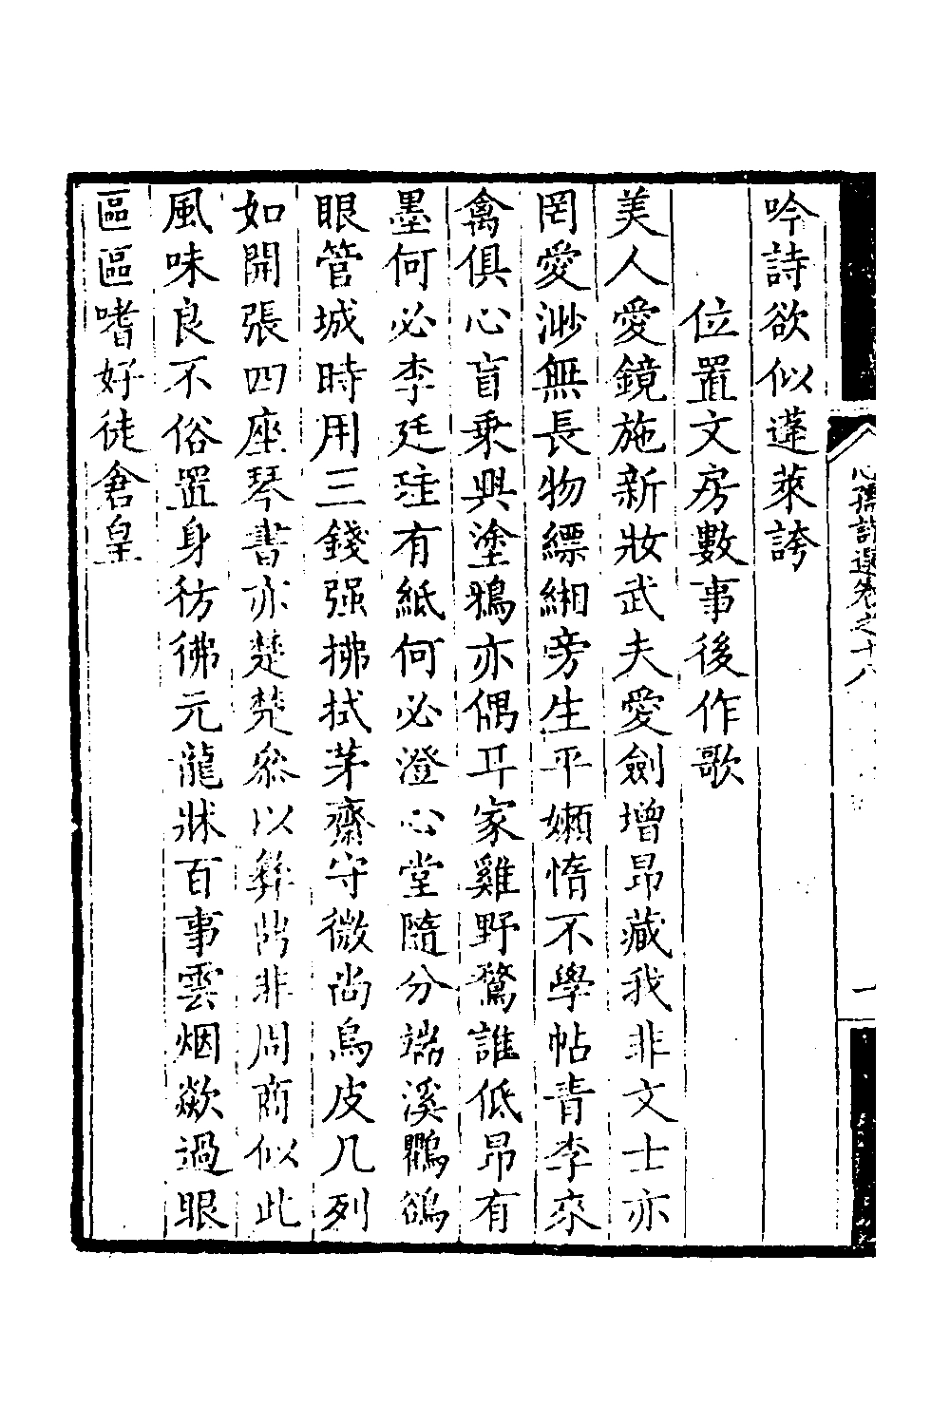 吟詩欲似蓬萊誇
位置文房數事後作歌
美人愛鏡施新妝武夫愛劍增昂藏我非文士亦
罔愛渺無長物縹緗旁生平嬾惰不學帖青李來
禽俱心盲乗興塗鴉亦偶耳家雞野鶩誰低昂有
墨何必李廷珪有紙何必澄心堂隨分端溪鸜鵒
眼管城時用三錢强拂拭茅齋守微尚烏皮几列
如開張四座琴書亦楚楚參以彝鼎非周商似此
風味良不俗置身彷彿元龍牀百事雲烟歘過眼
區區嗜好徒倉皇
心孺詩選卷之十八
一